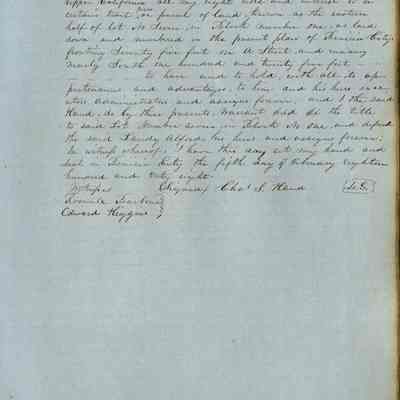 Upper California all my right title and interest to a
certain tract or parcel of land, known as the eastern
half of lot No Seven in Block number one, as laid
down and numbered in the present plan of
fronting Seventy five feet on A Street and running
nearly South one hundred and twenty five feet
to have and to hold, with all its ap
purtenances and advantages, to him and his heirs exe-
cutors administrators and assigns forever, and I the said
Hand, do by these presents, warrant and the title
to said Lot Number seven in Block No one, and defend
the said his heirs and assigns forever
In witness whereof, I have this day set my hand and
seal in City the fifth day of February eighteen
hundred and forty eight.
Witness (Signed) Chas. S. Hand L.S.
Edward Higgins